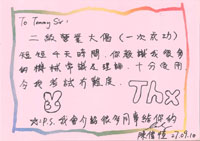 To Tommy Sir:
二級警察大傷 (一次成功)
短短4天時間,你教識我很多
的機械常識及理論,十分後用
令我考試冇難度.
Thx
P.S. 我會介紹你多同事給你的
27.09.10